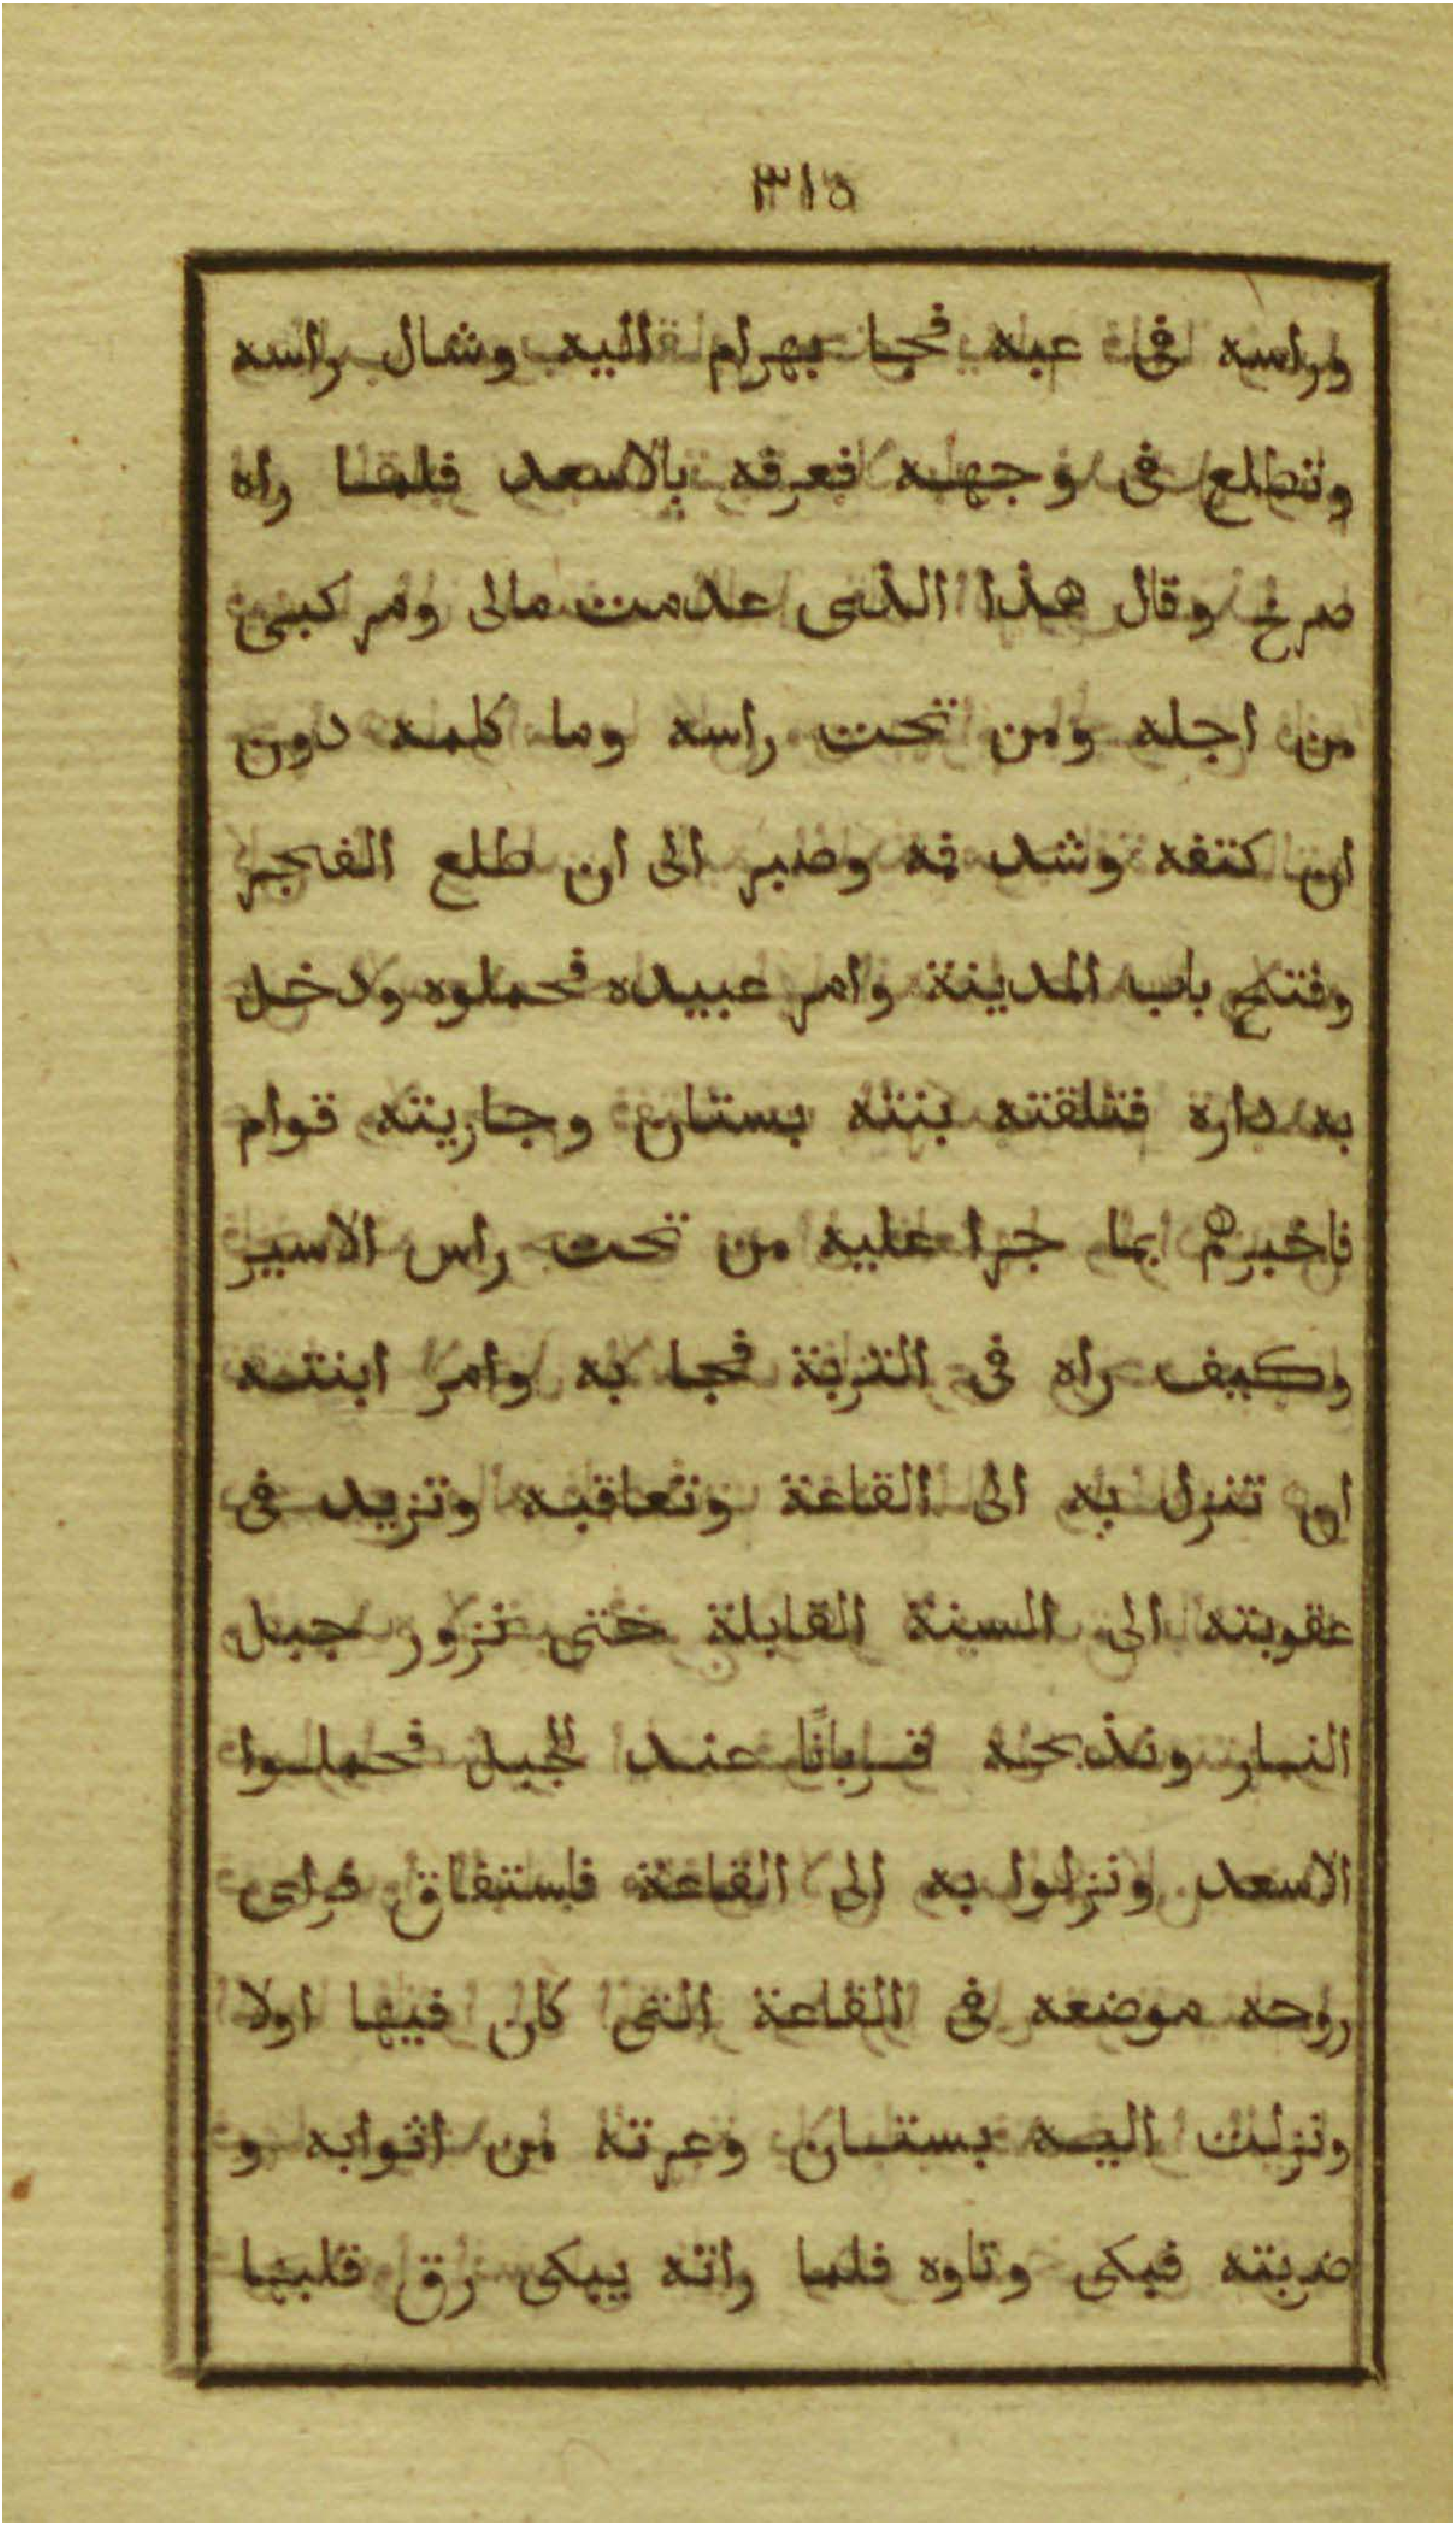 ٣١٥
وراسه فى عبه فجا بهرام اليه وشال راسه
وتطلع فى وجهه فعرفه بالاسعد فلما راه
صرخ وقال هذا الذى عدمت مالى ومركبى
من اجله ومن تحت راسه وما كلمه دون
ان كتفه وشد فمه وصبر الى ان طلع الفجر
وفتح باب المدينة وامر عبيده فحملوه ودخل
به داره فتلقته بنته بستان وجاريته قوام
فاخبرهم بما جرا عليه من تحت راس الاسير
وكيف راه فى التربة فجا به وامر ابنته
ان تنزل به الى القاعة وتعاقبه وتزيد فى
عقوبته الى السنة القابلة حتى نزور جبل
النار ونذبحه قربانًا عند الجبل فحملوا
الاسعد ونزلوا به الى القاعة فاستفاق فراى
روحه موضعه فى القاعة التى كان فيها اولا
ونزلت اليه بستان وعرته من اثوابه و
ضربته فبكى وتاوه فلما راته يبكى رق قلبها